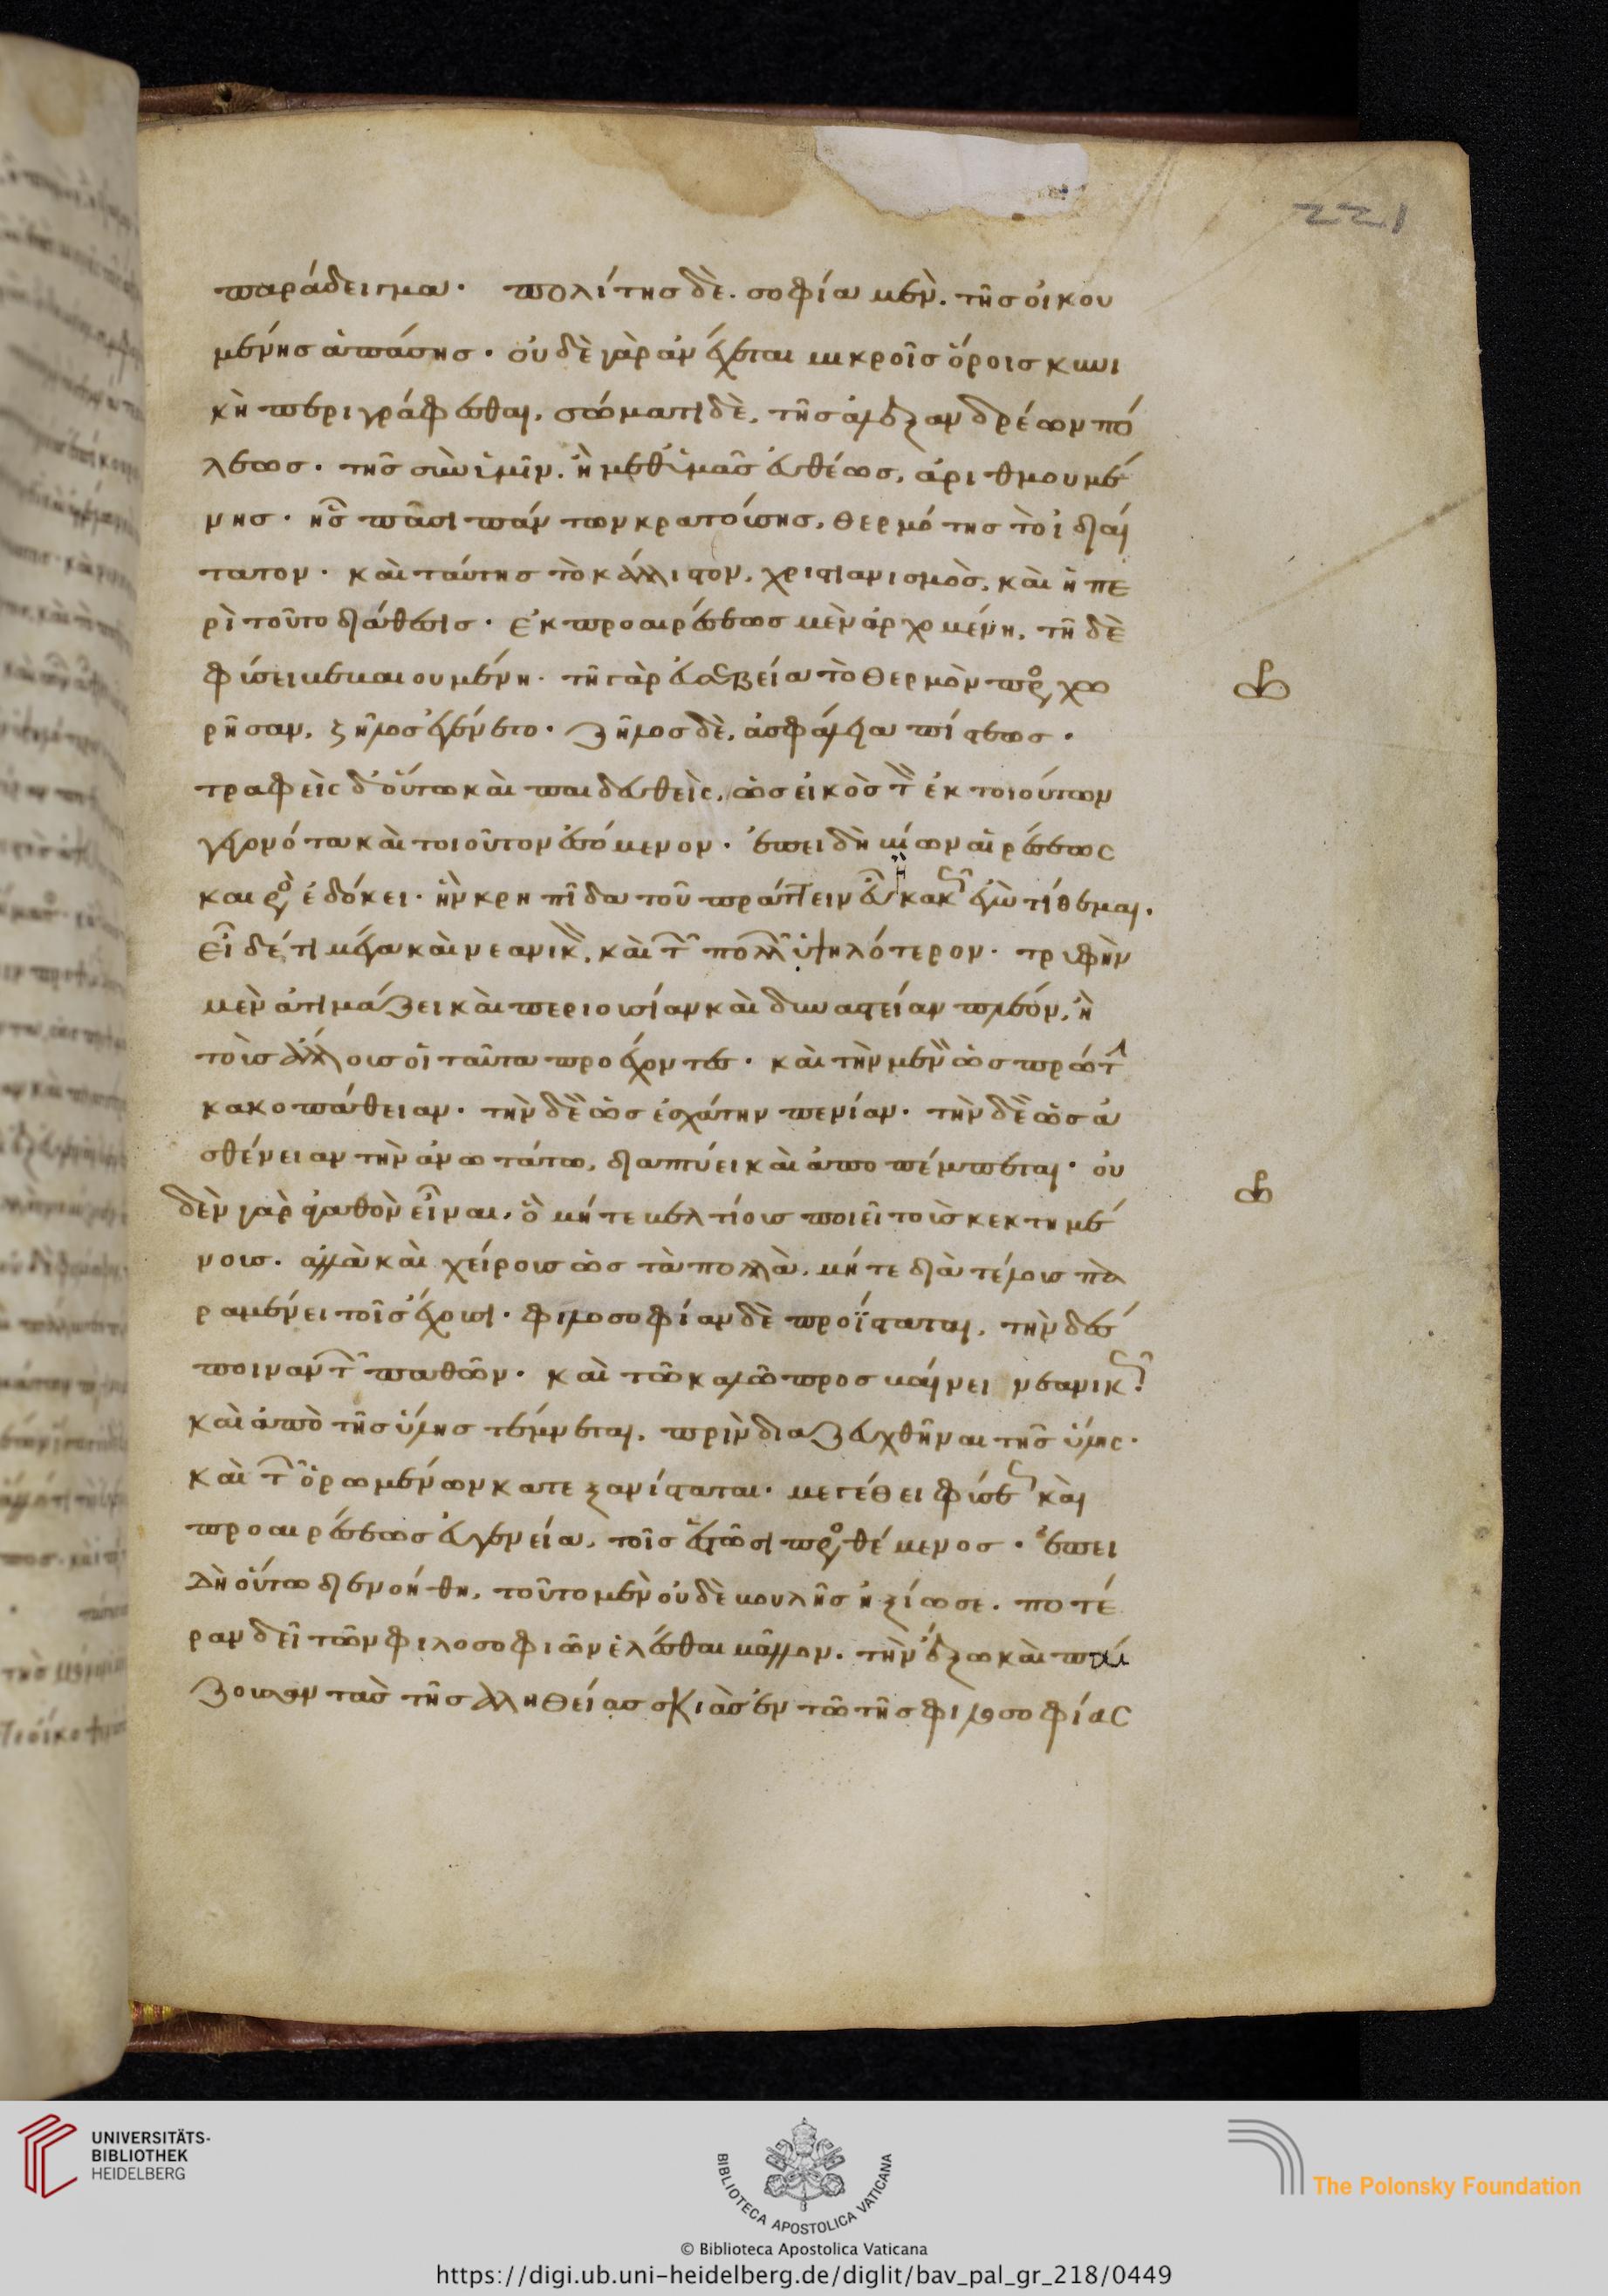 παράδειγμα· πολίτης δὲ. σοφία μὲν. τῆς οἰκου
μένης ἁπάσης· οὐδὲ γὰρ ἀνέχεται μικροῖς ὅροις κυνι
κὴ περιγράφεσθαι, σώματι δὲ, τῆς ἀλεξανδρέων πό
λεως· τῆς σὺν ἡμῖν. ἢ μεθ' ἡμᾶς εὐθέως, ἀριθμουμέ
νης· ἧς πᾶσι πάντων κρατούσης, θερμότης τὸ ἰδιαί
τατον· καὶ ταύτης τὸ κάλλιστον, χριστιανισμὸς, καὶ ἡ πε
ρὶ τοῦτο διάθεσις· ἐκ προαιρέσεως μὲν ἀρχομένη, τῆ δὲ
φύσει βεβαιουμένη· τῆ γὰρ εὐσεβεία τὸ θερμὸν προσχω
ρῆσαν, ζῆλος ἐγένετο· ζῆλος δὲ, ἀσφάλεια πίστεως·
τραφεὶς δ' οὕτω καὶ παιδευθεὶς, ὡς εἰκὸς τὸν ἐκ τοιούτων
γεγονότα καὶ τοιοῦτον ἐσόμενον· ἐπειδὴ βίων αἱρέσεως
καιρὸς ἐδόκει· ἣν κρηπῖδα τοῦ πράττειν εὖ ἢ κακῶς ἐγὼ τίθεμαι.
εἶδέ τι μέγα καὶ νεανικὸν, καὶ τῶν πολλῶν ὑψηλότερον· τρυφὴν
μὲν ἀτιμάζει καὶ περιουσίαν καὶ δυναστείαν πλέον, ἢ
τοῖς ἄλλοις οἱ ταῦτα προέχοντες· καὶ τὴν μὲν ὡς πρώτην
κακοπάθειαν· τὴν δὲ ὡς ἐσχάτην πενίαν· τὴν δὲ ὡς ἀ
σθένειαν τὴν ἀνωτάτω, διαπτύει καὶ ἀποπέμπεται· οὐ
δὲν γὰρ ἀγαθὸν εἶναι, ὃ μήτε βελτίους ποιεῖ τοὺς κεκτημέ
νους. ἀλλὰ καὶ χείρους ὡς τὰ πολλὰ, μήτε διὰ τέλους πα
ραμένει τοῖς ἔχουσι· φιλοσοφίαν δὲ προΐσταται, τὴν δέσ
ποιναν τῶν παθῶν· καὶ τῶ καλῶ προσβαίνει νεανικῶς·
καὶ ἀπὸ τῆς ὕλης τέμνεται, πρὶν διαζευχθῆναι τῆς ὕλης·
καὶ τῶν ὁρωμένων κατεξανίσταται· μεγέθει φύσεως καὶ
προαιρέσεως εὐγενεία, τοῖς ἑστῶσι προσθέμενος· ἐπει
δὴ οὕτω διενοήθη, τοῦτο μὲν οὐδὲ βουλῆς ἠξίωσε. ποτέ
ραν δεῖ τῶν φιλοσοφιῶν ἑλέσθαι μᾶλλον. τὴν ἔξω καὶ παί
ζουσαν τὰς τῆς ἀληθείας σκιὰς ἐν τῶ τῆς φιλοσοφίας
221
UNIVERSITÄTS-
BIBLIOTHEK
HEIDELBERG
BIBLIOTECA APOSTOLICA VATICANA
The Polonsky Foundation
© Biblioteca Apostolica Vaticana
https://digi.ub.uni-heidelberg.de/diglit/bav_pal_gr_218/0449